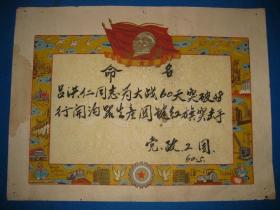 命名
吕洪仁同志为大战60天突破好
行开沟器生产圆 红旗突击手
党、政、工、团.
60.5.